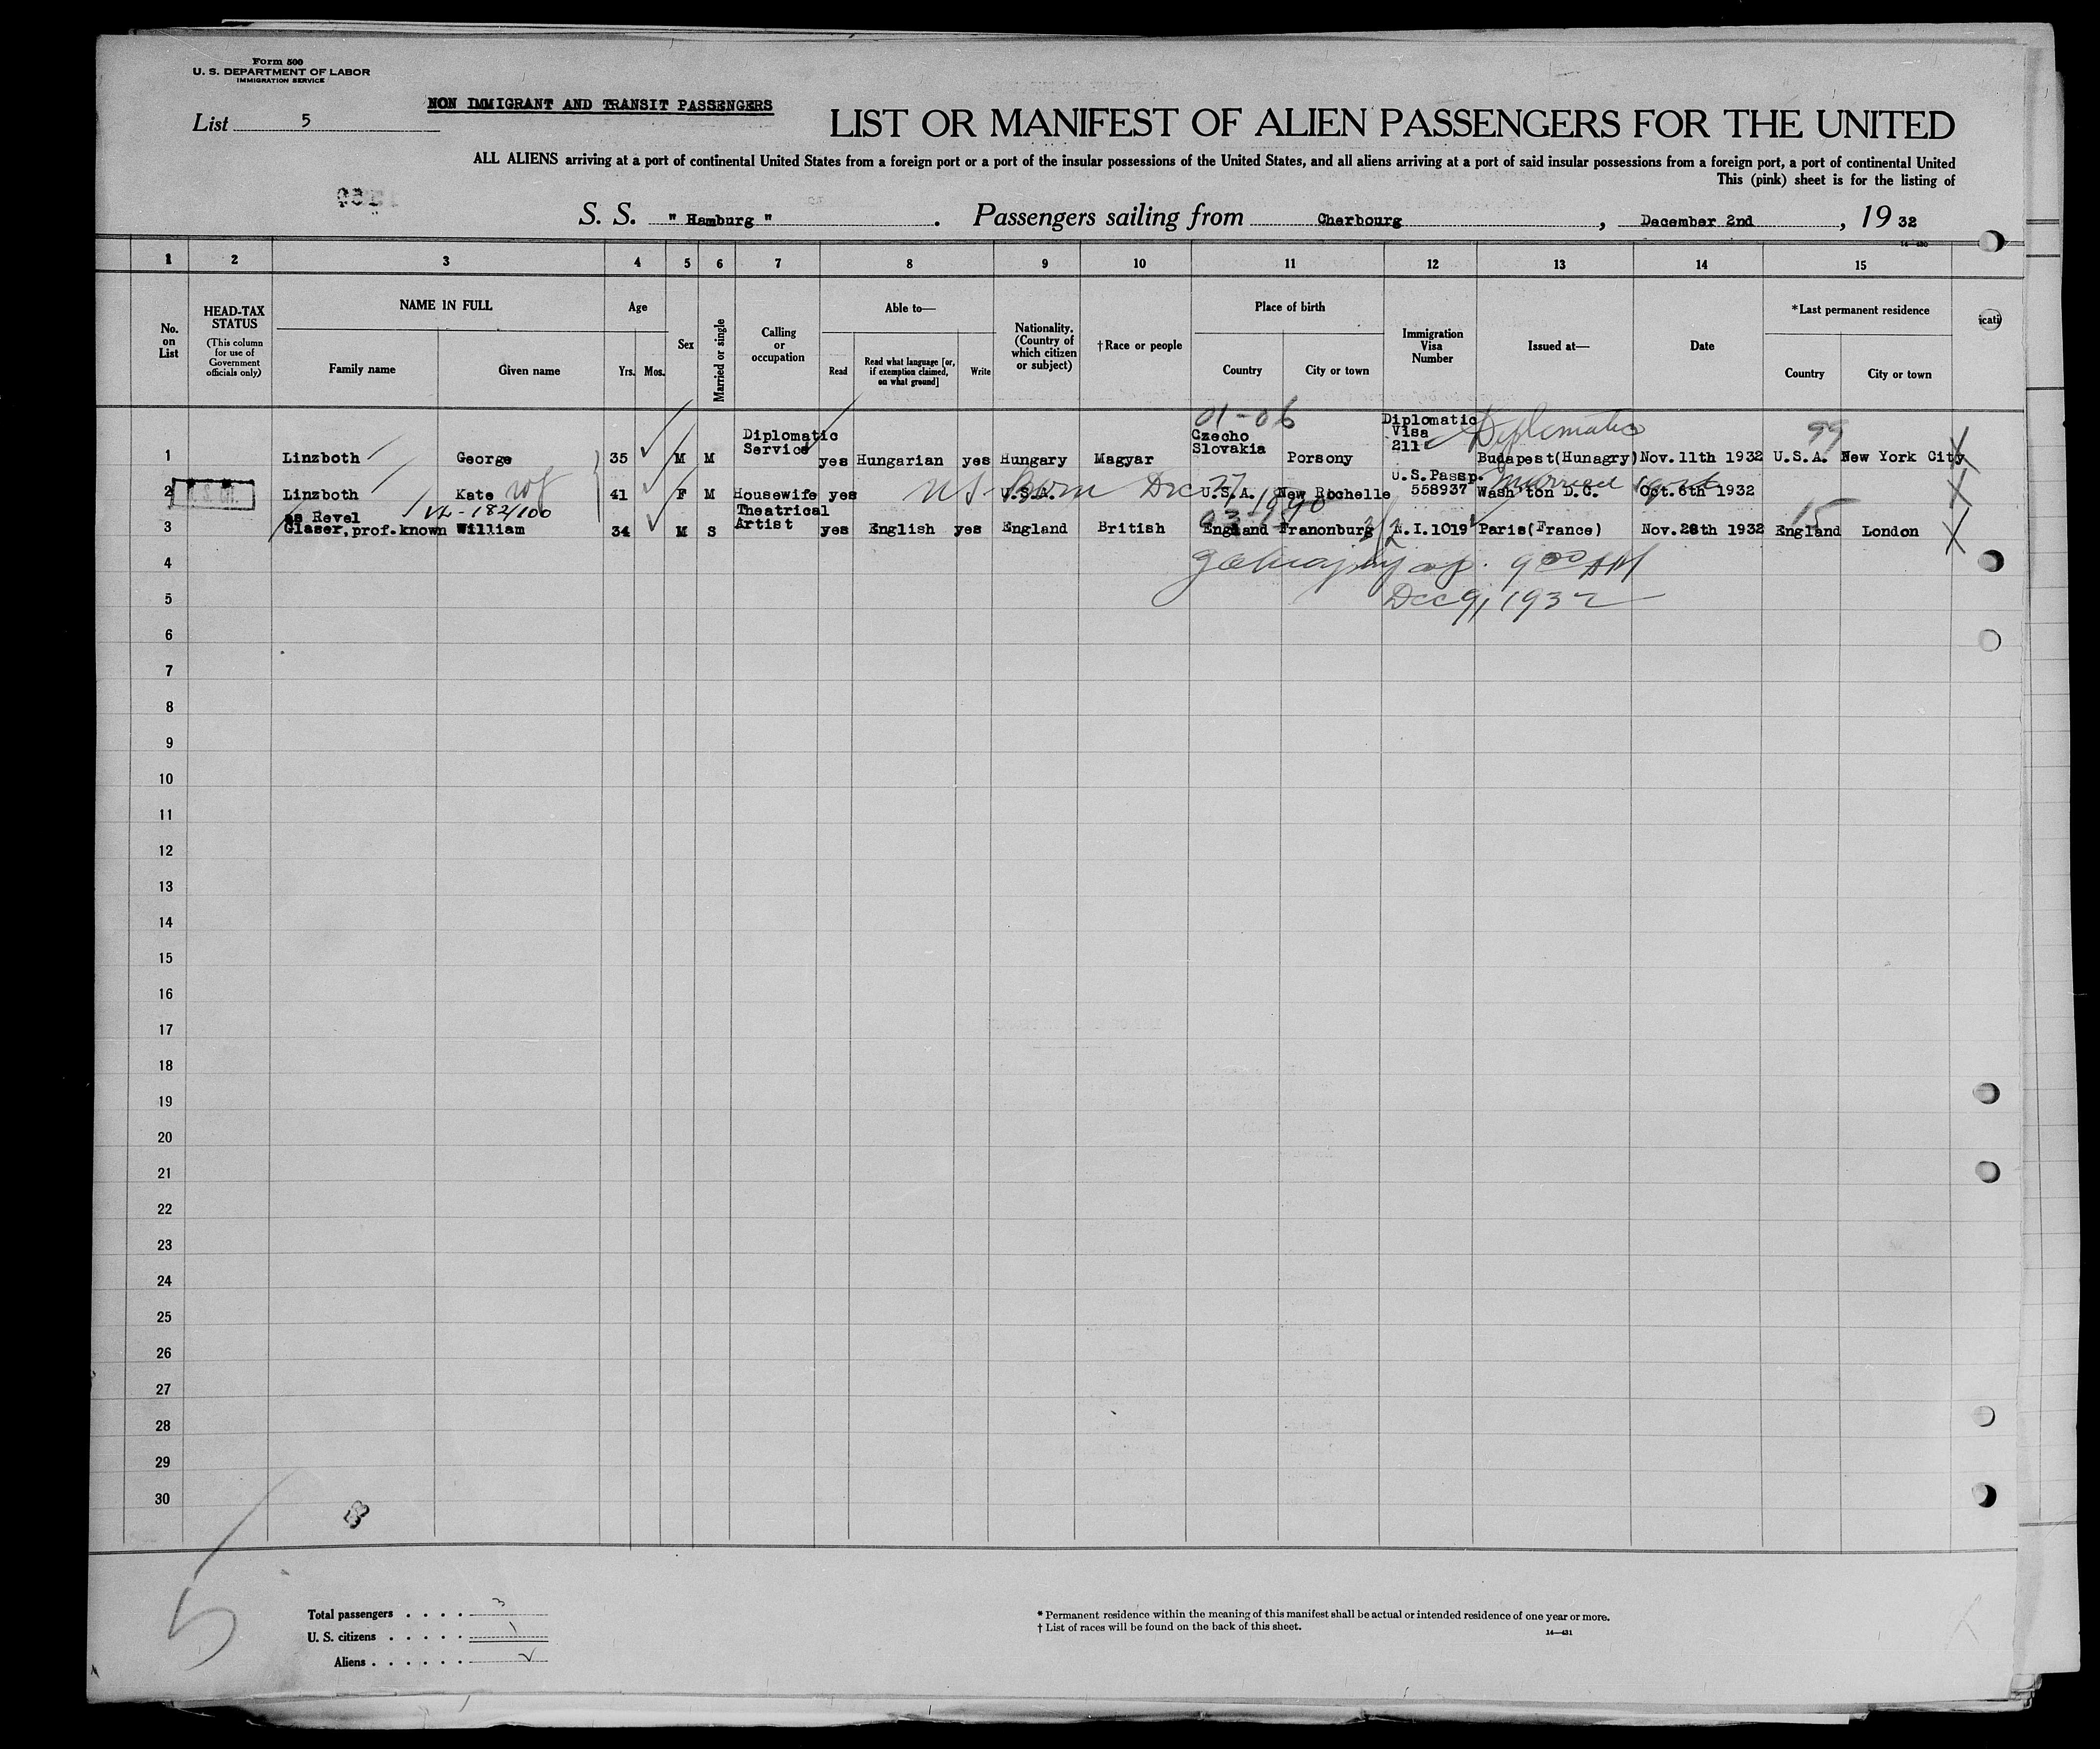 Form 500
U. S. DEPARTMENT OF LABOR
IMMIGRATION SERVICE
NON IMMIGRANT AND TRANSIT PASSENGERS
List 5
LIST OR MANIFEST OF ALIEN PASSENGERS FOR THE UNITED
ALL ALIENS arriving at a port of continental United States from a foreign port or a port of the insular possessions of the United States, and all aliens arriving at a port of said insular possessions from a foreign port, a port of continental United
This (pink) sheet is for the listing of
S. S. " Hamburg " . Passengers sailing from Cherbourg , December 2nd , 19 32
1 2 3 4 5 6 7 8 9 10 11 12 13 14 15
No. on List
HEAD-TAX STATUS
(This column for use of Government officials only)
NAME IN FULL
Family name
Given name
Age
Yrs. Mos.
Sex
Married or single
Calling or occupation
Able to—
Read
Read what language [or, if exemption claimed, on what ground]
Write
Nationality. (Country of which citizen or subject)
† Race or people
Place of birth
Country
City or town
Immigration Visa Number
Issued at—
Date
*Last permanent residence
Country
City or town
icati
01-06 99
1 Linzboth George 35 M M Diplomatic Service yes Hungarian yes Hungary Magyar Czecho Slovakia Porsony Diplomatic Visa 211 Diplomatic Budapest(Hunagry) Nov.11th 1932 U.S.A. New York City
2 Linzboth Kate 41 F M Housewife yes U.S.A. U.S.A. New Rochelle U.S.Passp. 558937 Wash'ton D.C. Oct.6th 1932
US-Born Dec 27 1890 married
as Revel
3 Glaser, prof.known William 34 M S Theatrical Artist yes English yes England British England Franonburg N.I.1019 Paris(France) Nov.28th 1932 England London
03-15 15
4 9 00 AM
5 Dec 9, 1932
6
7
8
9
10
11
12
13
14
15
16
17
18
19
20
21
22
23
24
25
26
27
28
29
30
5
Total passengers . . . . 3
U. S. citizens . . . . . 1
Aliens . . . . . .
* Permanent residence within the meaning of this manifest shall be actual or intended residence of one year or more.
† List of races will be found on the back of this sheet.
14—431